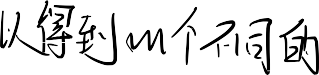 以得到m个不同的